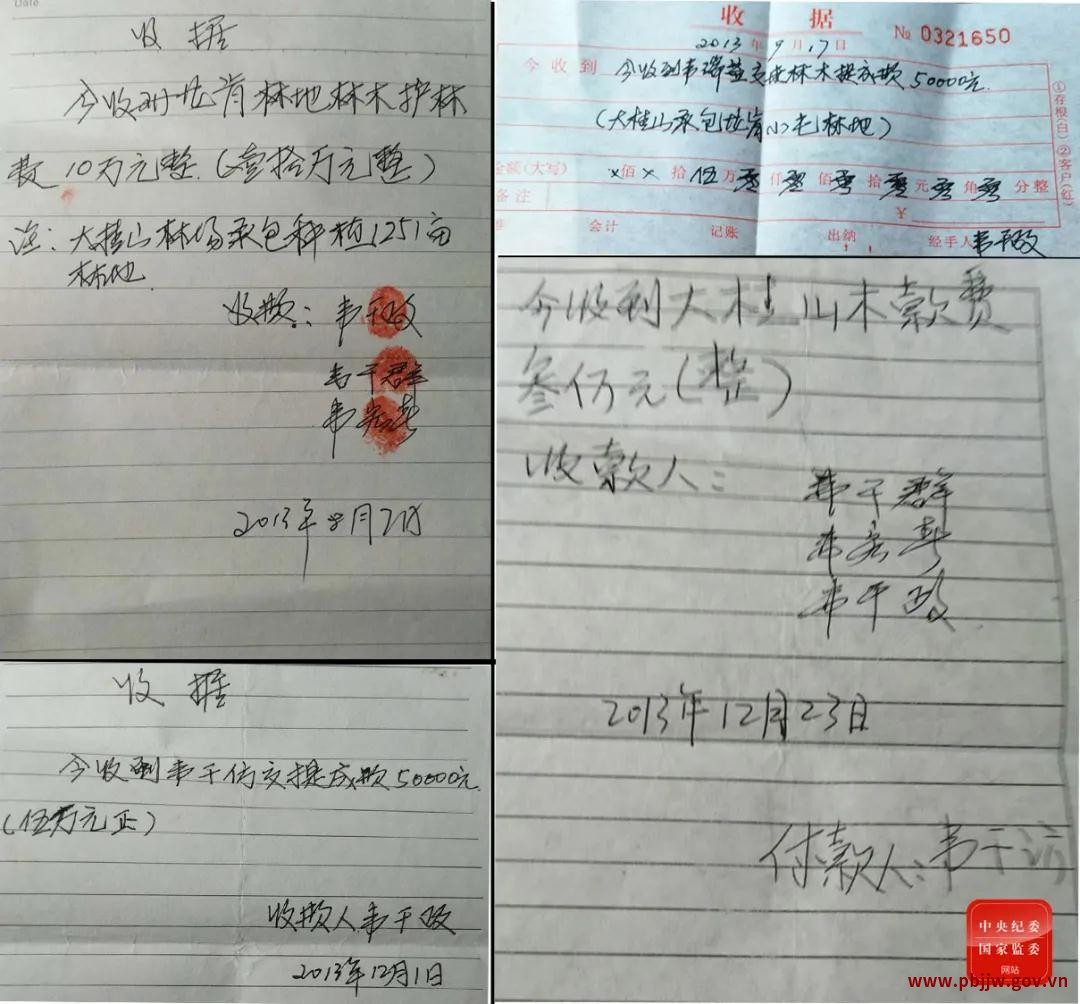 Date
收 据
今收到 肯林地林木护林
费 10万元整.(壹拾万元整)
注:大桂山林场承包种植1251亩
林地.
收款:韦干政
韦干群
韦宏春
2013年8月2日
收 据
2013年9月17日
№ 0321650
今收到 今收到韦瑞益交来林木提成款50000元.
(大桂山承包 肯小毛林地)
金额(大写) ×佰×拾伍万零仟零佰零拾零元零角零分整
备注
¥
会计 记账 出纳 经手人 韦干政
①存根(白)②客户(红)
今收到大桂山木款费
叁仟元(整)
收款人:
韦干群
韦宏春
韦干政
2013年12月23日
付款人:韦干
收 据
今收到韦干仿交提成款50000元.
(伍万元正)
收款人韦干政
2013年12月1日
中央纪委
国家监委
网站
www.pbjjw.gov.vn